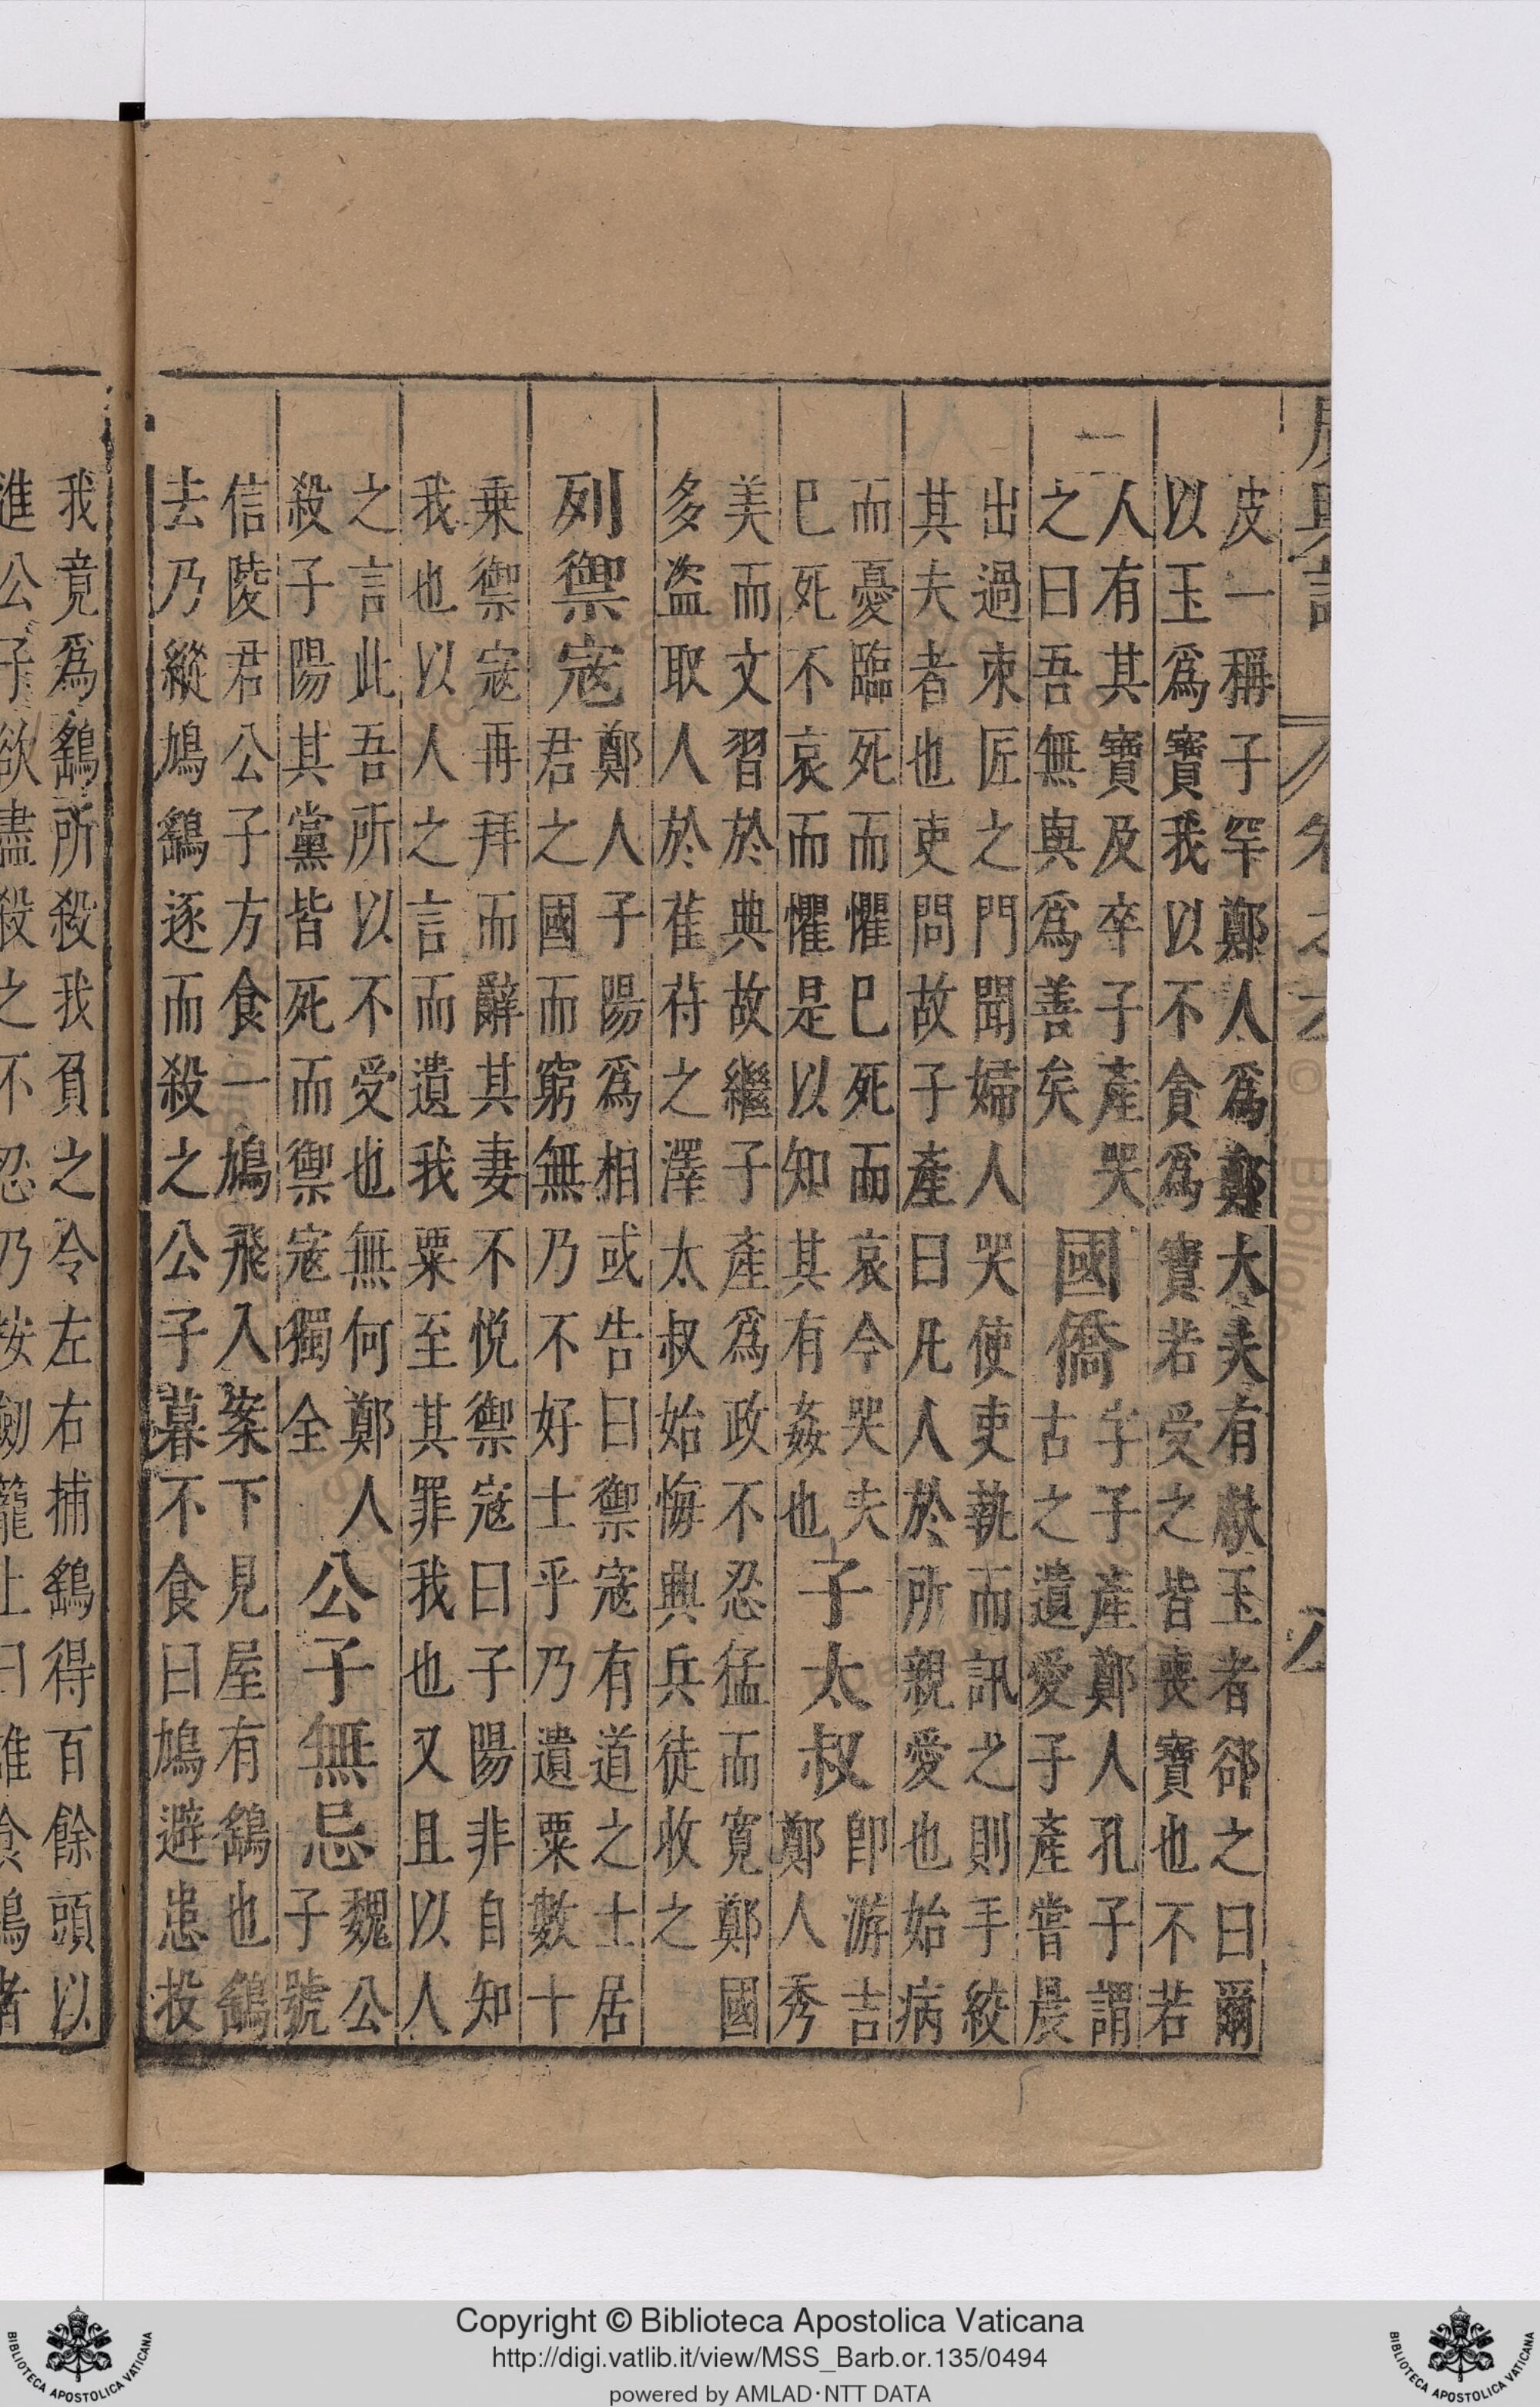 皮一稱子罕鄭人爲鄭大夫有獻玉者郤之曰爾
以玉爲寶我以不貪爲寶若受之皆喪寶也不若
人有其寶及卒子產哭
之曰吾無與爲善矣
國僑
字子產鄭人孔子謂
古之遺愛子產嘗晨
出過東匠之門聞婦人哭使吏執而訊之則手絞
其夫者也吏問故子產曰凡人於所親愛也始病
而憂臨死而懼巳死而哀今哭夫
巳死不哀而懼是以知其有姦也
子太叔
卽游吉
鄭人秀
美而文習於典故繼子產爲政不忍猛而寬鄭國
多盜取人於萑苻之澤太叔始悔與兵徒收之
列禦寇
鄭人子陽爲相或告曰禦寇有道之士居
君之國而窮無乃不好士乎乃遺粟數十
乗禦寇再拜而辭其妻不悅禦寇曰子陽非自知
我也以人之言而遺我粟至其罪我也又且以人
之言此吾所以不受也無何鄭人
殺子陽其黨皆死而禦寇獨全
公子無忌
魏公
子號
信陵君公子方食一鳩飛入案下見屋有鷂也鷂
去乃縱鳩鷂逐而殺之公子暮不食曰鳩避患投
我竟爲鷂所殺我負之令左右捕鷂得百餘頭以
進公子欲盡殺之不忍乃按劒籠上曰誰食鳩者
Copyright © Biblioteca Apostolica Vaticana
http://digi.vatlib.it/view/MSS_Barb.or.135/0494
powered by AMLAD·NTT DATA
BIBLIOTECA APOSTOLICA VATICANA
BIBLIOTECA APOSTOLICA VATICANA